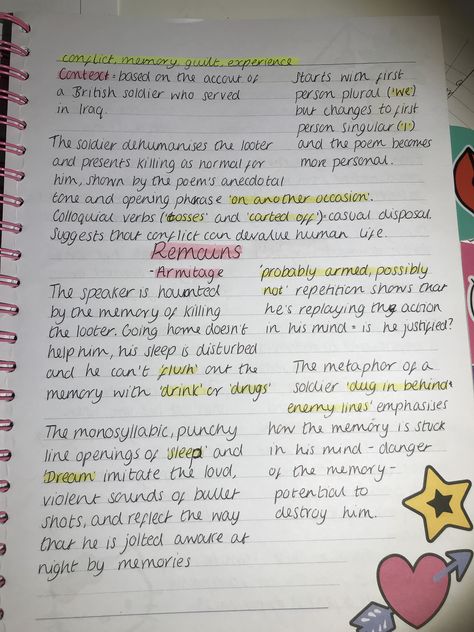 conflict, memory, guilt, experience
Context = based on the accout of
a British soldier who served
in Iraq.
starts with first
person plural ('we')
but changes to first
person singular ('I')
and the poem becomes
more personal.
The soldier dehumanises the looter
and presents killing as normal for
him, shown by the poem's anecdotal
tone and opening phrase 'on another occasion'.
Colloquial verbs ('tosses' and 'carted off') = casual disposal.
Suggests that conflict can devalue human life.
Remains
- Armitage
The speaker is haunted
by the memory of killing
the looter. Going home doesn't
help him, his sleep is disturbed
and he can't 'flush' out the
memory with 'drink' or 'drugs'
'probably armed, possibly
not' repetition shows that
he's replaying the action
in his mind = is he justified?
The metaphor of a
soldier 'dug in behind
enemy lines' emphasises
how the memory is stuck
in his mind - danger
of the memory -
potential to
destroy him.
The monosyllabic, punchy
line openings of 'sleep' and
'Dream' imitate the loud,
violent sounds of bullet
shots, and reflect the way
that he is jolted awake at
night by memories